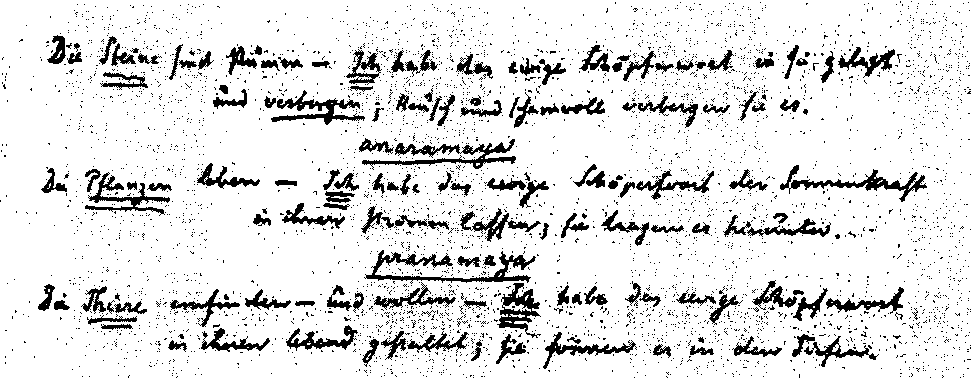 Die Steine sind stumm — Ich habe das ewige Schöpferwort in sie gelegt
und verborgen; keusch und schamvoll verbergen sie es.
annamaya
Die Pflanzen leben — Ich habe das ewige Schöpferwort der Sonnenkraft
in ihnen strömen lassen; sie tragen es hinunter.
pranamaya
Die Thiere empfinden — und wollen — Ich habe das ewige Schöpferwort
in ihnen lebend gestaltet; sie formen es in den Tiefen.